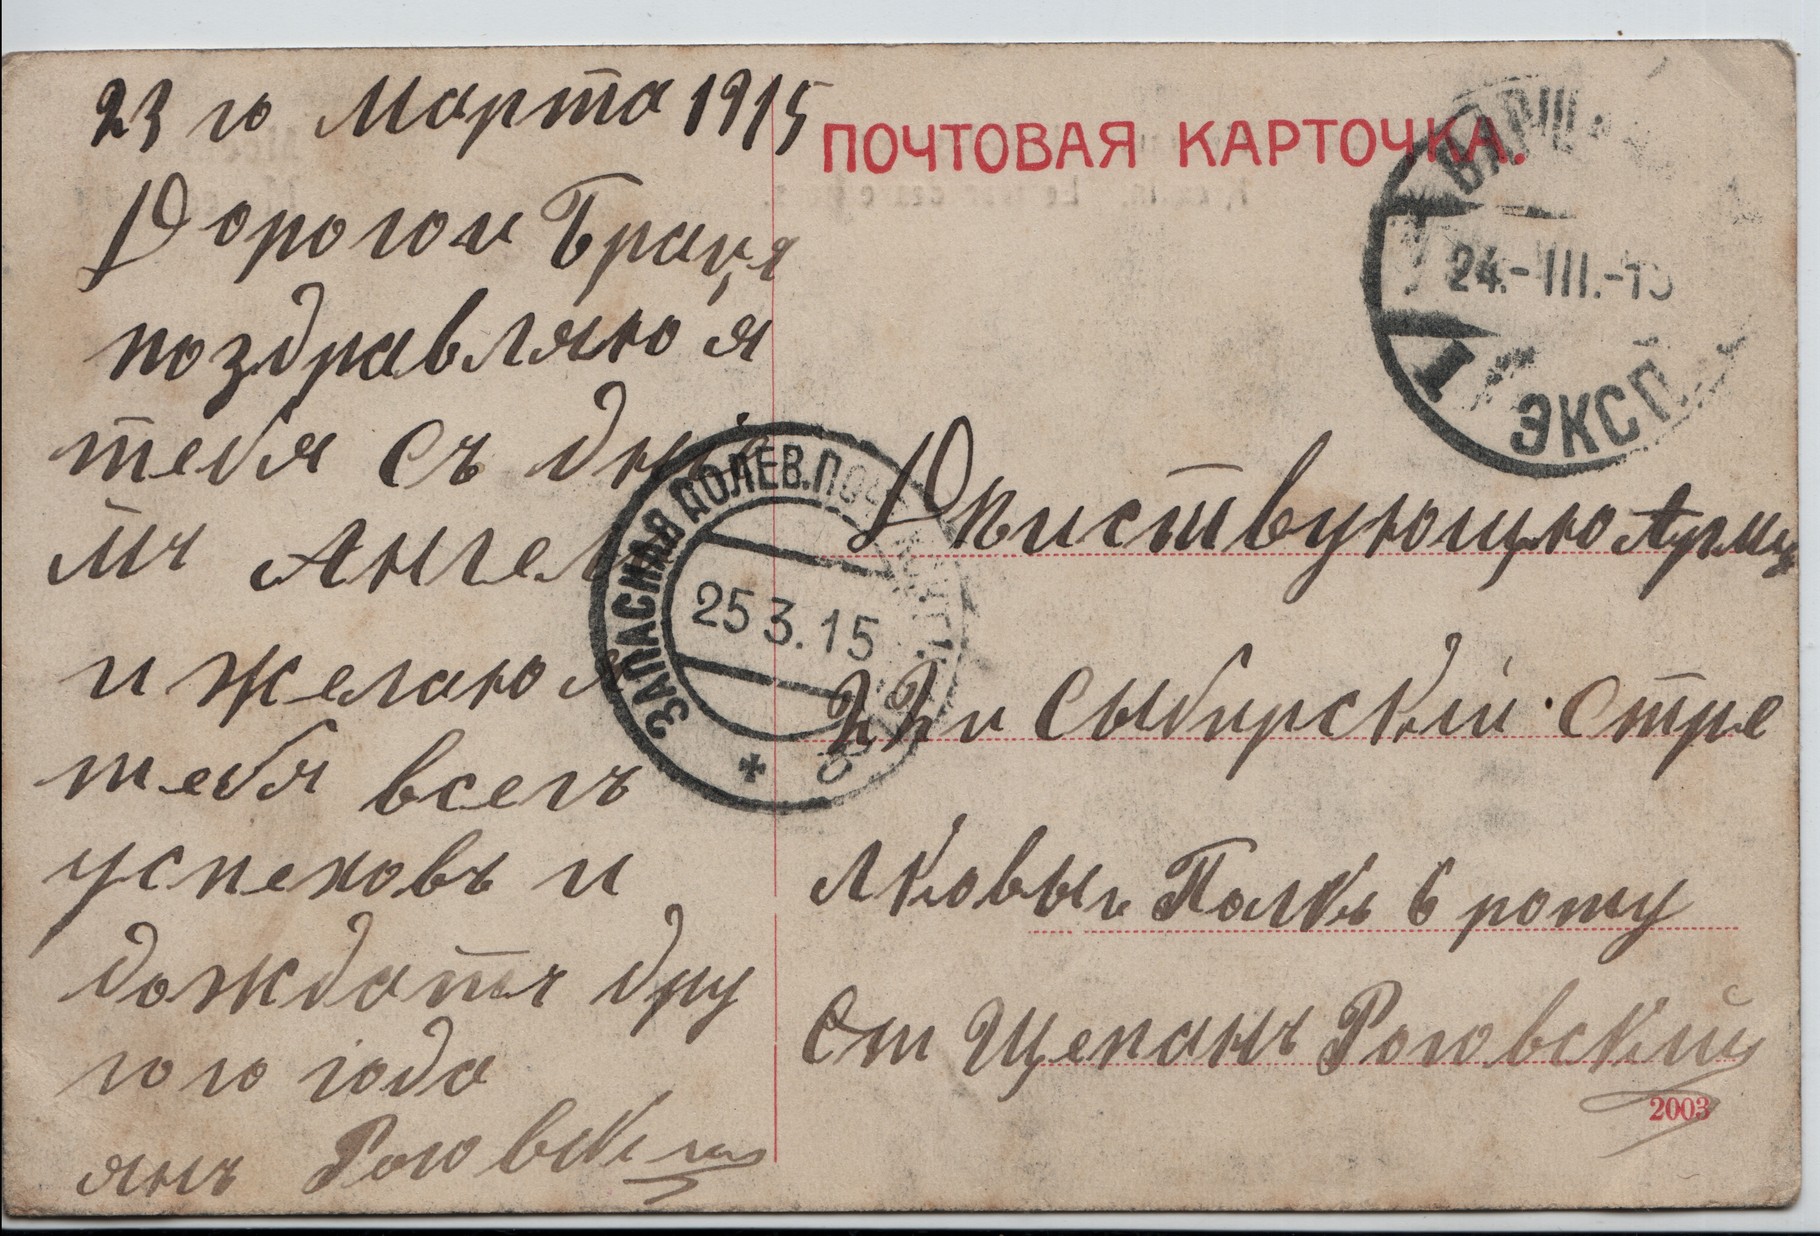 23 го Марта 1915
Дорогои Браця
поздравляю я
тебя съ дні
мъ Ангел
и желаю я
тебя всегъ
успеховъ и
дождатъ дру
гого года
янъ Роговский
ПОЧТОВАЯ КАРТОЧКА.
24.-III.-15
ЭКСП.
ЗАПАСНАЯ ПОЛЕВ. ПОЧТ. КОНТ.
25 3. 15
Дпиствующую Армию
сыбирский Стре
лковый Полкъ 6 роту
От Щепанъ Роговский
2003